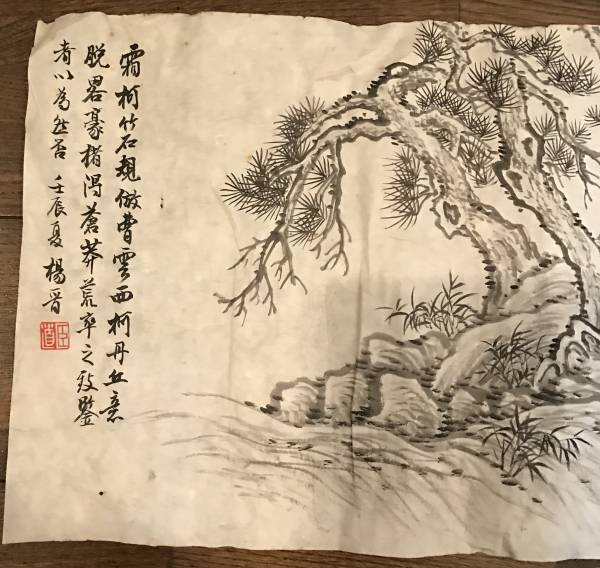 霜柯竹石規倣曹雲西柯丹丘意
脱畧豪楮得蒼莽荒率之致鑒
者以為然否 壬辰夏 楊晋